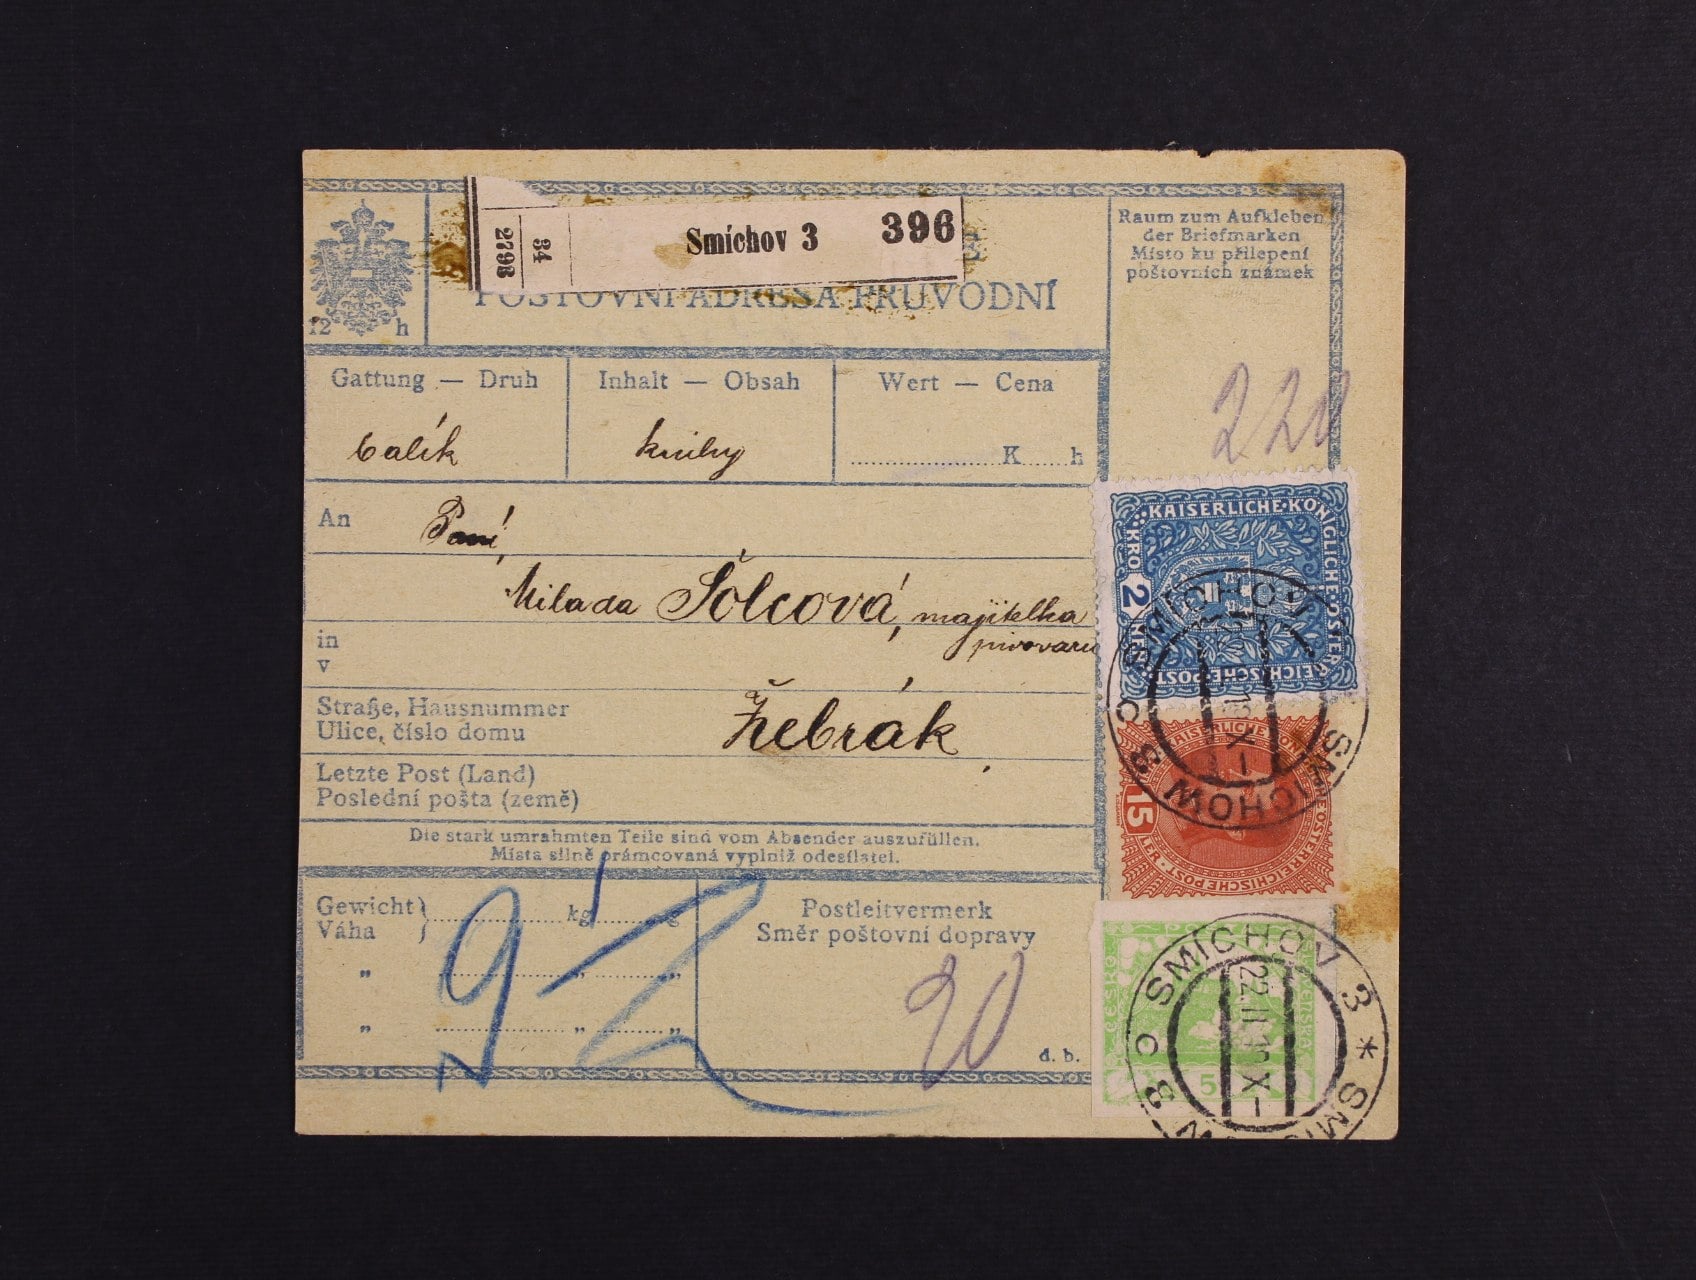 34
2798
Smíchov 3 396
POŠTOVNÍ ADRESA PRŮVODNÍ
12 h
Raum zum Aufkleben
der Briefmarken
Místo ku přilepení
poštovních známek
220
Gattung — Druh
Inhalt — Obsah
Wert — Cena
balík
knihy
K h
An
Paní,
Milada Šolcová, majitelka
pivovaru
in
v
Straße, Hausnummer
Ulice, číslo domu
Žebrák
Letzte Post (Land)
Poslední pošta (země)
Die stark umrahmten Teile sind vom Absender auszufüllen.
Místa silně orámcovaná vyplniž odesílatel.
Gewicht
Váha
kg g
" " "
" " "
Postleitvermerk
Směr poštovní dopravy
90
d. b.
KAISERLICHE·KÖNIGLICHE·ÖSTERREICHISCHE·POST
2
SMÍCHOV 3
KAISERLICHE KÖNIGLICHE ÖSTERREICHISCHE POST
15
HELLER
ČESKO
SLOVENSKÁ
5
SMÍCHOV 3 * SMÍCHOV 3
22.II.19 X–